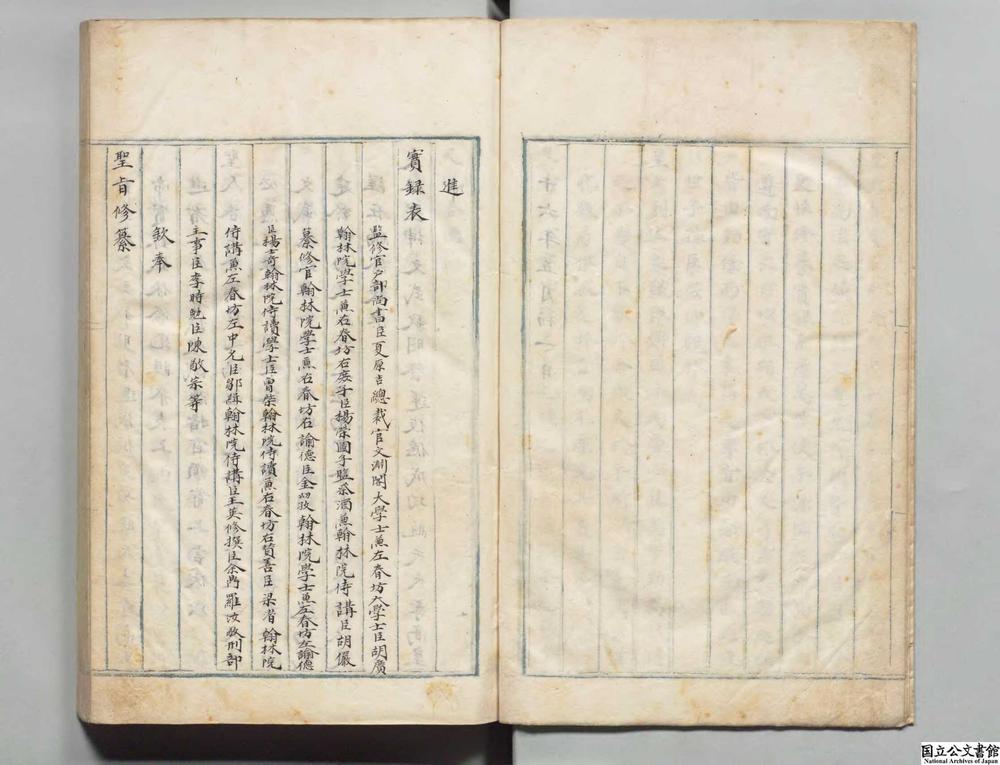 進
實録表
監修官戸部尚書臣夏原吉總裁官文淵閣大學士兼左春坊大學士臣胡廣
翰林院學士兼右春坊右庶子臣楊榮國子監祭酒兼翰林院侍講臣胡儼
纂修官翰林院學士兼右春坊右諭德臣金幼孜翰林院學士兼左春坊左諭德
臣楊士奇翰林院侍讀學士臣曾棨翰林院侍讀兼右春坊右賛善臣梁潜翰林院
侍講兼左春坊左中允臣鄒緝翰林院侍講臣王英修撰臣余鼎羅汝敬刑部
主事臣李時勉臣陳敬宗等
欽奉
聖旨修纂
国立公文書館
National Archives of Japan